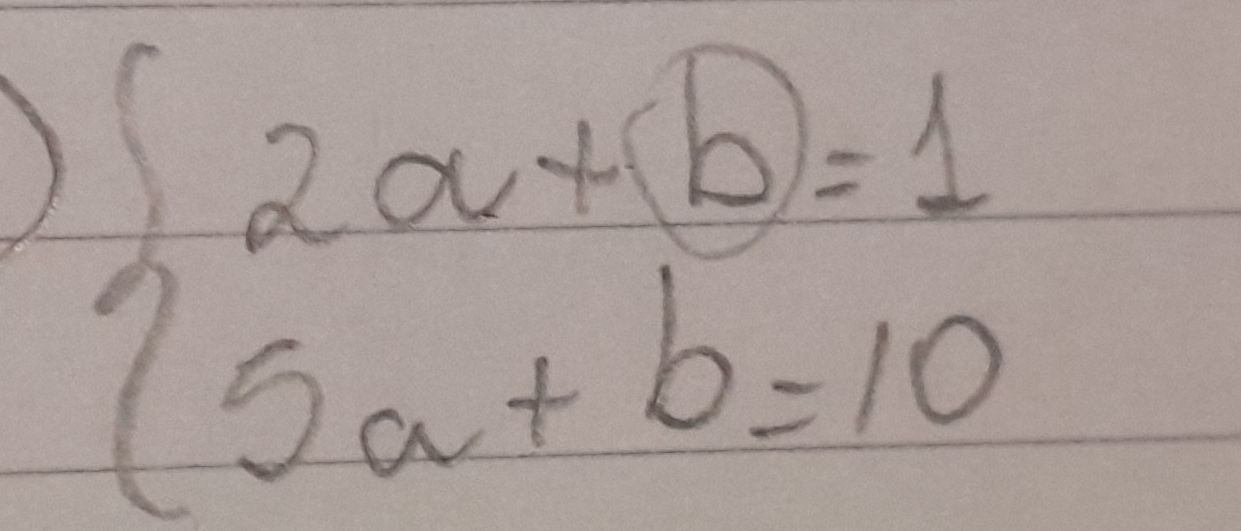 2a + b = 1
5a + b = 10